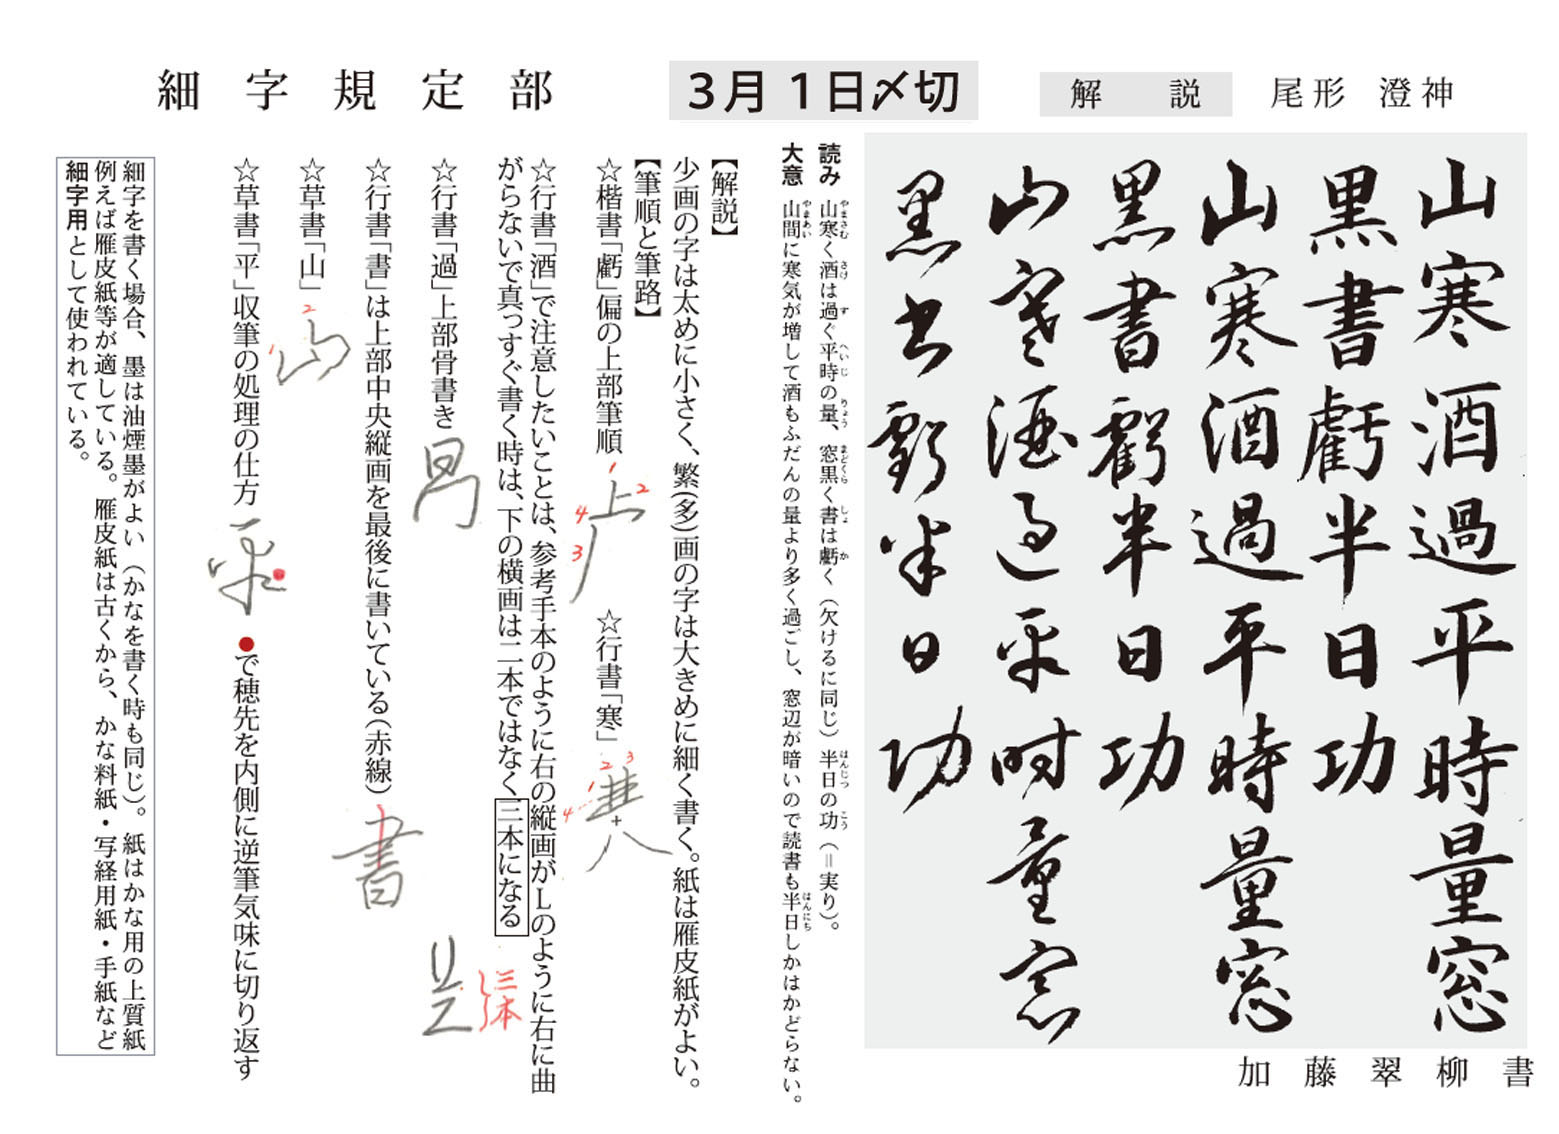 細字規定部
3月1日〆切
解説
尾形 澄神
山寒酒過平時量窓
黒書虧半日功
山寒酒過平時量窓
黒書虧半日功
山寒酒過平時量窓
黒書虧半日功
加藤翠柳書
読み 山寒く酒は過ぐ平時の量、窓黒く書は虧く（欠けるに同じ）半日の功（＝実り）。
やまさむ さけ す へいじ りょう まどくら しょ か はんじつ こう
大意 山間に寒気が増して酒もふだんの量より多く過ごし、窓辺が暗いので読書も半日しかはかどらない。
やまあい はんにち
【解説】
少画の字は太めに小さく、繁(多)画の字は大きめに細く書く。紙は雁皮紙がよい。
【筆順と筆路】
☆楷書「虧」偏の上部筆順
1 2 4 3
☆行書「寒」
1 2 3 4
☆行書「酒」で注意したいことは、参考手本のように右の縦画がLのように右に曲
がらないで真っすぐ書く時は、下の横画は二本ではなく三本になる
三本
☆行書「過」上部骨書き
☆行書「書」は上部中央縦画を最後に書いている(赤線)
書
☆草書「山」
1 2 山
☆草書「平」収筆の処理の仕方
平
●で穂先を内側に逆筆気味に切り返す
細字を書く場合、墨は油煙墨がよい（かなを書く時も同じ）。紙はかな用の上質紙
例えば雁皮紙等が適している。雁皮紙は古くから、かな料紙・写経用紙・手紙など
細字用として使われている。